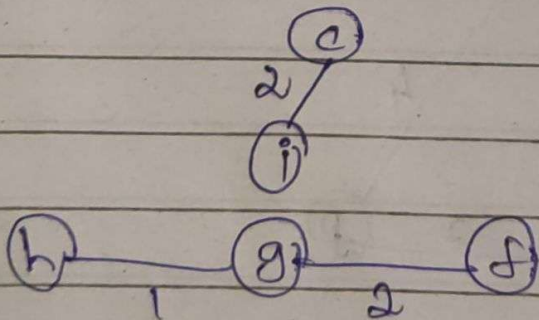 c
2
i
h g f
1 2